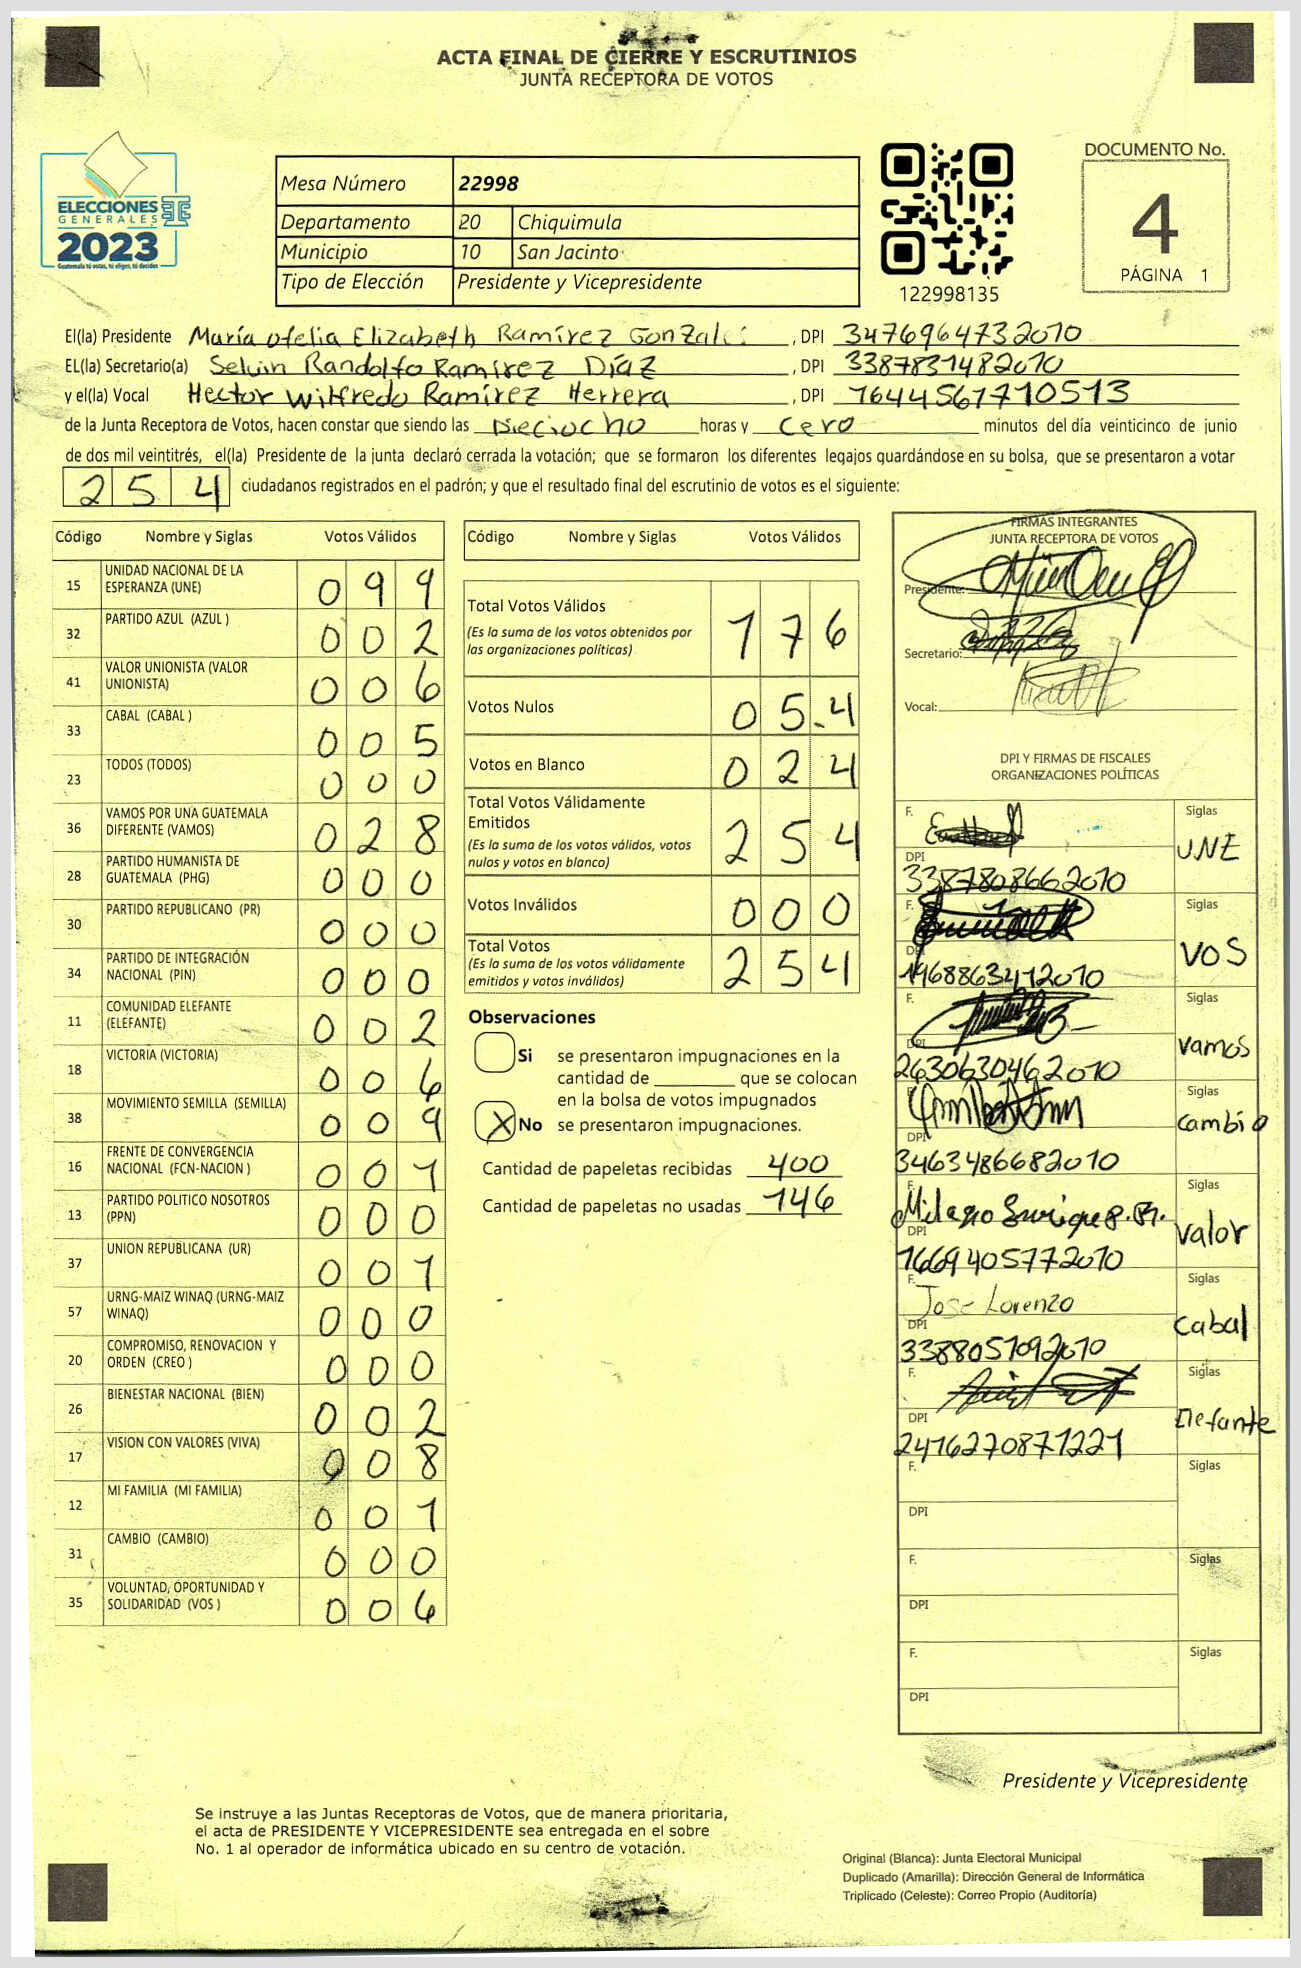 ACTA FINAL DE CIERRE Y ESCRUTINIOS
JUNTA RECEPTORA DE VOTOS
ELECCIONES
GENERALES
2023
Guatemala tú votas, tú eliges, tú decides
Mesa Número 22998
Departamento 20 Chiquimula
Municipio 10 San Jacinto
Tipo de Elección Presidente y Vicepresidente
122998135
DOCUMENTO No.
4
PÁGINA 1
El(la) Presidente María ofelia Elizabeth Ramírez Gonzalez, DPI 3476964732010
EL(la) Secretario(a) Selvin Randolfo Ramirez Díaz, DPI 3387831482010
y el(la) Vocal Hector Wilfredo Ramírez Herrera, DPI 1644561710513
de la Junta Receptora de Votos, hacen constar que siendo las Dieciocho horas y Cero minutos del día veinticinco de junio
de dos mil veintitrés, el(la) Presidente de la junta declaró cerrada la votación; que se formaron los diferentes legajos guardándose en su bolsa, que se presentaron a votar
254 ciudadanos registrados en el padrón; y que el resultado final del escrutinio de votos es el siguiente:
Código Nombre y Siglas Votos Válidos
15 UNIDAD NACIONAL DE LA ESPERANZA (UNE) 099
32 PARTIDO AZUL (AZUL ) 002
41 VALOR UNIONISTA (VALOR UNIONISTA) 006
33 CABAL (CABAL ) 005
23 TODOS (TODOS) 000
36 VAMOS POR UNA GUATEMALA DIFERENTE (VAMOS) 028
28 PARTIDO HUMANISTA DE GUATEMALA (PHG) 000
30 PARTIDO REPUBLICANO (PR) 000
34 PARTIDO DE INTEGRACIÓN NACIONAL (PIN) 000
11 COMUNIDAD ELEFANTE (ELEFANTE) 002
18 VICTORIA (VICTORIA) 006
38 MOVIMIENTO SEMILLA (SEMILLA) 009
16 FRENTE DE CONVERGENCIA NACIONAL (FCN-NACION ) 001
13 PARTIDO POLITICO NOSOTROS (PPN) 000
37 UNION REPUBLICANA (UR) 001
57 URNG-MAIZ WINAQ (URNG-MAIZ WINAQ) 000
20 COMPROMISO, RENOVACION Y ORDEN (CREO ) 000
26 BIENESTAR NACIONAL (BIEN) 002
17 VISION CON VALORES (VIVA) 008
12 MI FAMILIA (MI FAMILIA) 001
31 CAMBIO (CAMBIO) 000
35 VOLUNTAD, OPORTUNIDAD Y SOLIDARIDAD (VOS ) 006
Código Nombre y Siglas Votos Válidos
Total Votos Válidos 176
(Es la suma de los votos obtenidos por
las organizaciones políticas)
Votos Nulos 05.4
Votos en Blanco 024
Total Votos Válidamente
Emitidos 254
(Es la suma de los votos válidos, votos
nulos y votos en blanco)
Votos Inválidos 000
Total Votos 254
(Es la suma de los votos válidamente
emitidos y votos inválidos)
Observaciones
Si se presentaron impugnaciones en la
cantidad de ______ que se colocan
en la bolsa de votos impugnados
X No se presentaron impugnaciones.
Cantidad de papeletas recibidas 400
Cantidad de papeletas no usadas 146
FIRMAS INTEGRANTES
JUNTA RECEPTORA DE VOTOS
Presidente:
Secretario:
Vocal:
DPI Y FIRMAS DE FISCALES
ORGANIZACIONES POLÍTICAS
F. Siglas UNE
DPI 3387808662010
F. Siglas VOS
DPI 1968863412010
F. Siglas vamos
DPI 2630630462010
F. Siglas cambio
DPI 3463486682010
F. Siglas valor
DPI 1669405772010
F. Jose Lorenzo Siglas cabal
DPI 3388051092010
F. Siglas Elefante
DPI 2416270871221
F. Siglas
DPI
F. Siglas
DPI
F. Siglas
DPI
Presidente y Vicepresidente
Se instruye a las Juntas Receptoras de Votos, que de manera prioritaria,
el acta de PRESIDENTE Y VICEPRESIDENTE sea entregada en el sobre
No. 1 al operador de informática ubicado en su centro de votación.
Original (Blanca): Junta Electoral Municipal
Duplicado (Amarilla): Dirección General de Informática
Triplicado (Celeste): Correo Propio (Auditoría)